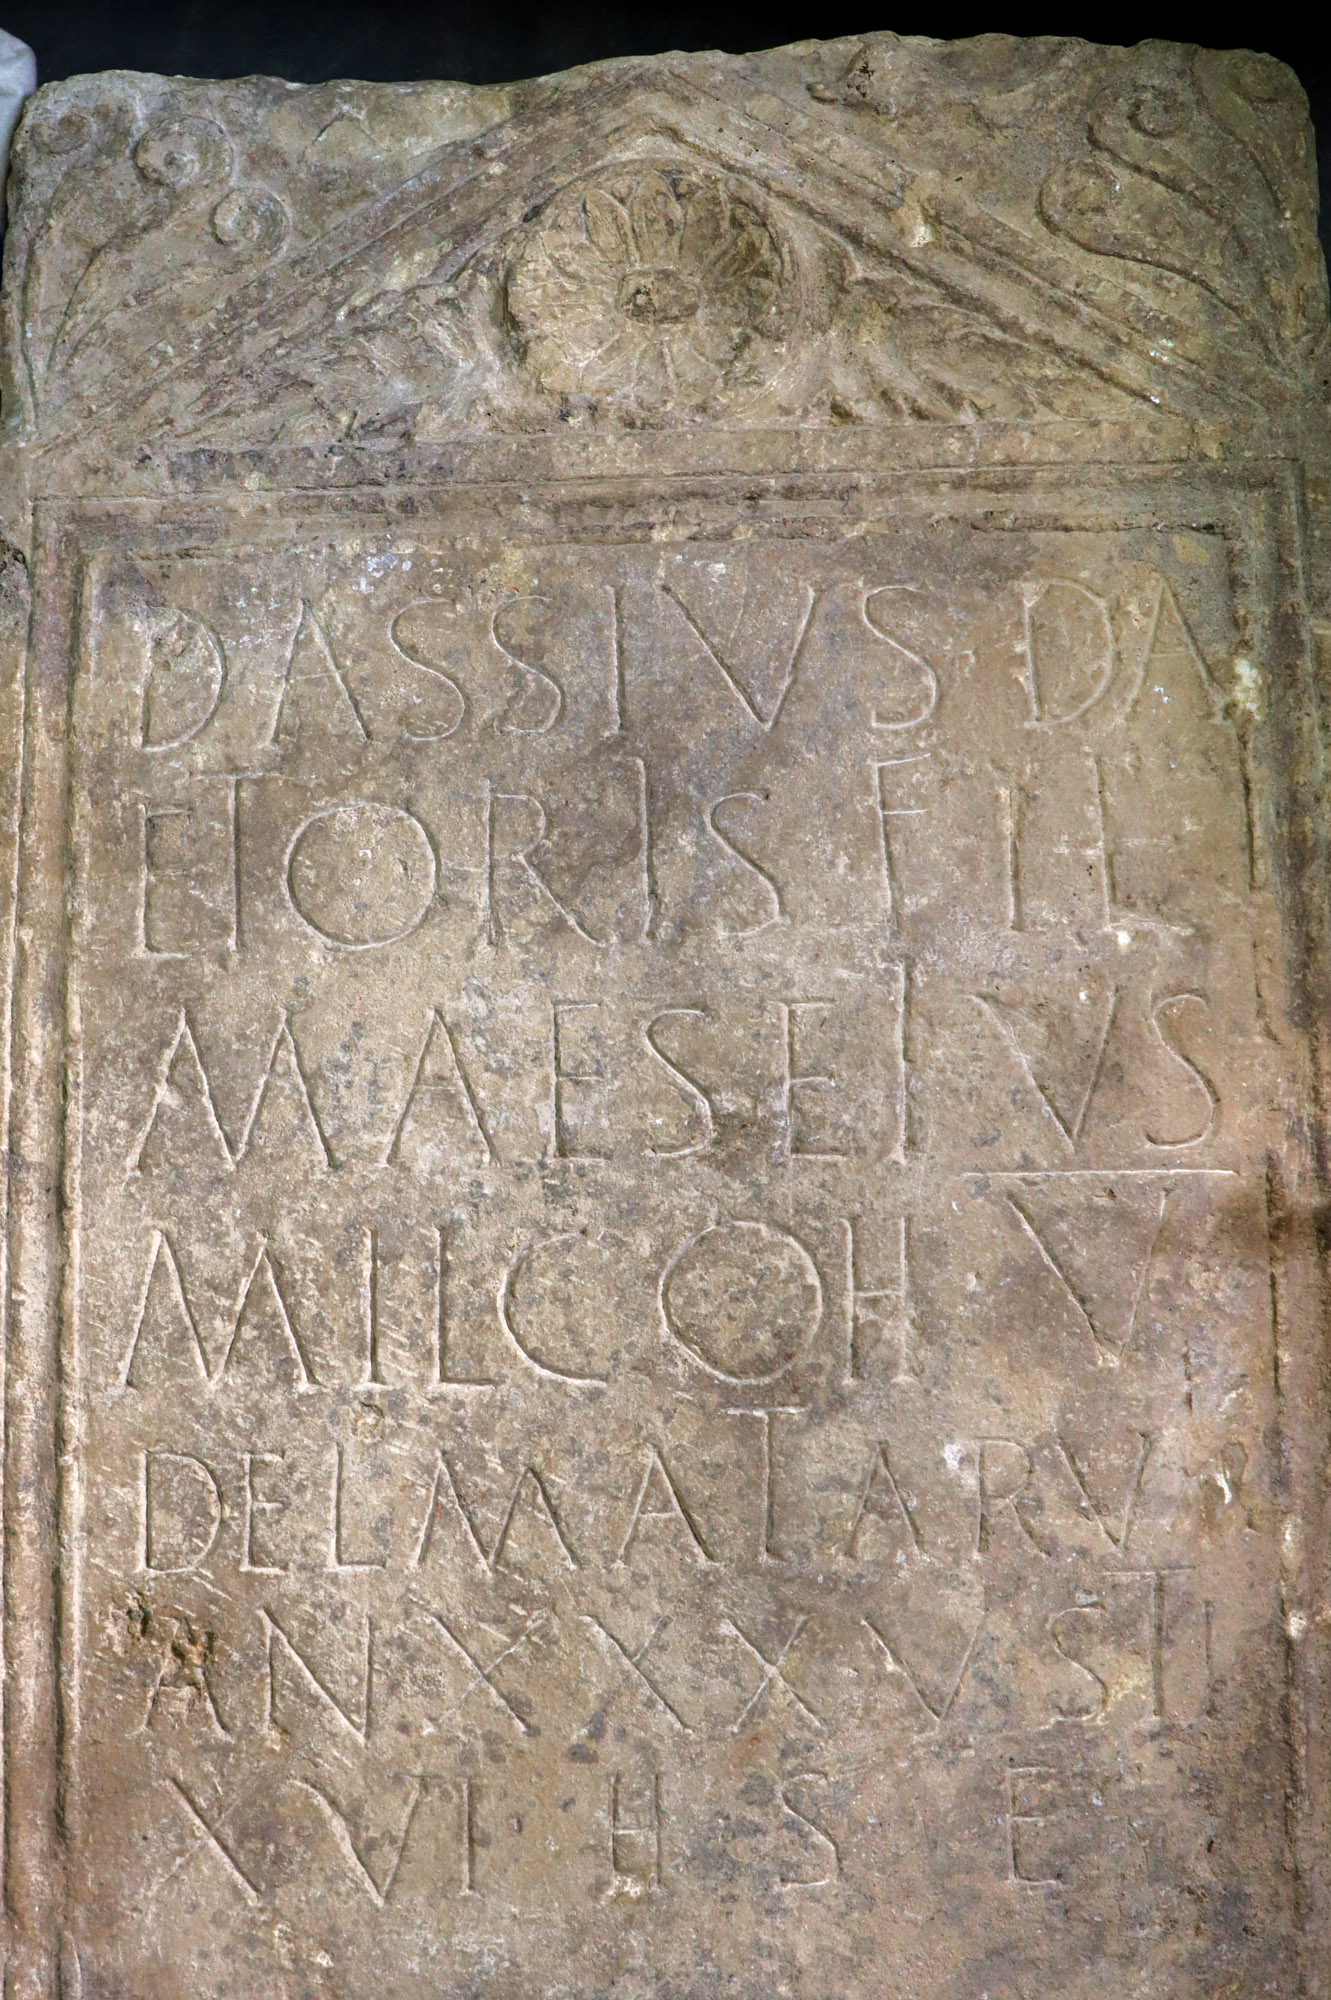 DASSIVS DA
ETORIS FIL
MAESEIVS
MIL COH V
DELMATARV
AN XXXV STI
XVI H S E